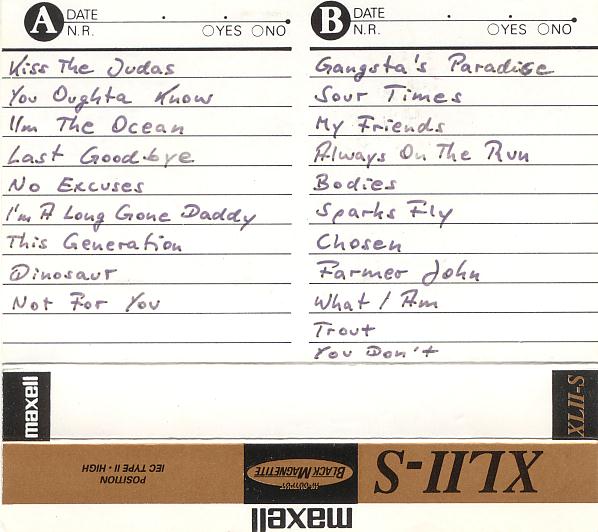 A DATE
N.R. YES NO
Kiss The Judas
You Oughta Know
I'm The Ocean
Last Goodbye
No Excuses
I'm A Long Gone Daddy
This Generation
Dinosaur
Not For You
B DATE
N.R. YES NO
Gangsta's Paradise
Sour Times
My Friends
Always On The Run
Bodies
Sparks Fly
Chosen
Farmer John
What I Am
Trout
You Don't
maxell
XLII-S
POSITION
IEC TYPE II • HIGH
BLACK MAGNETITE
XLII-S
maxell